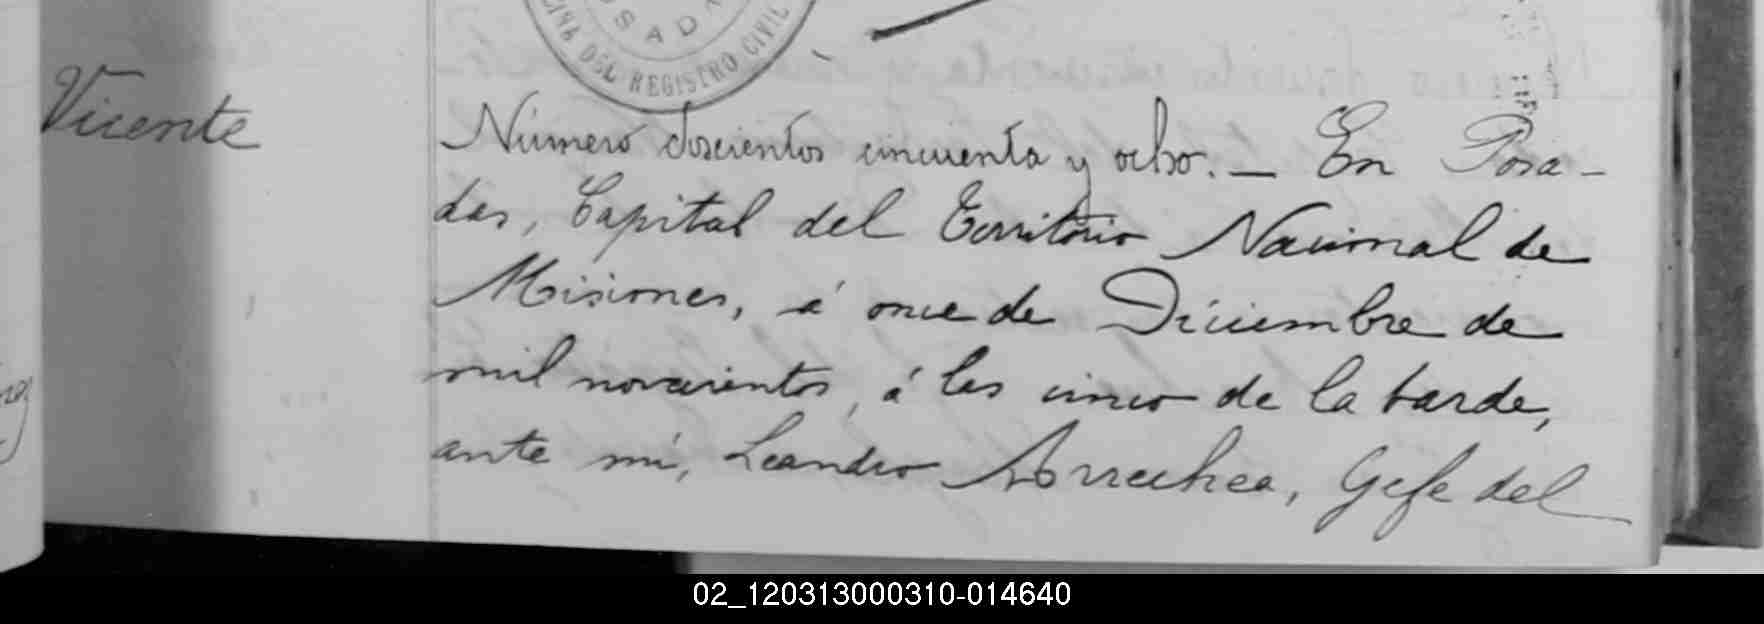 Vicente
OSADA
CINA DEL REGISTRO CIVIL
Número doscientos cincuenta y ocho. — En Posa-
das, Capital del Territorio Nacional de
Misiones, á once de Diciembre de
mil novecientos, á las cinco de la tarde,
ante mi, Leandro Arrechea, Gefe del
02_120313000310-014640